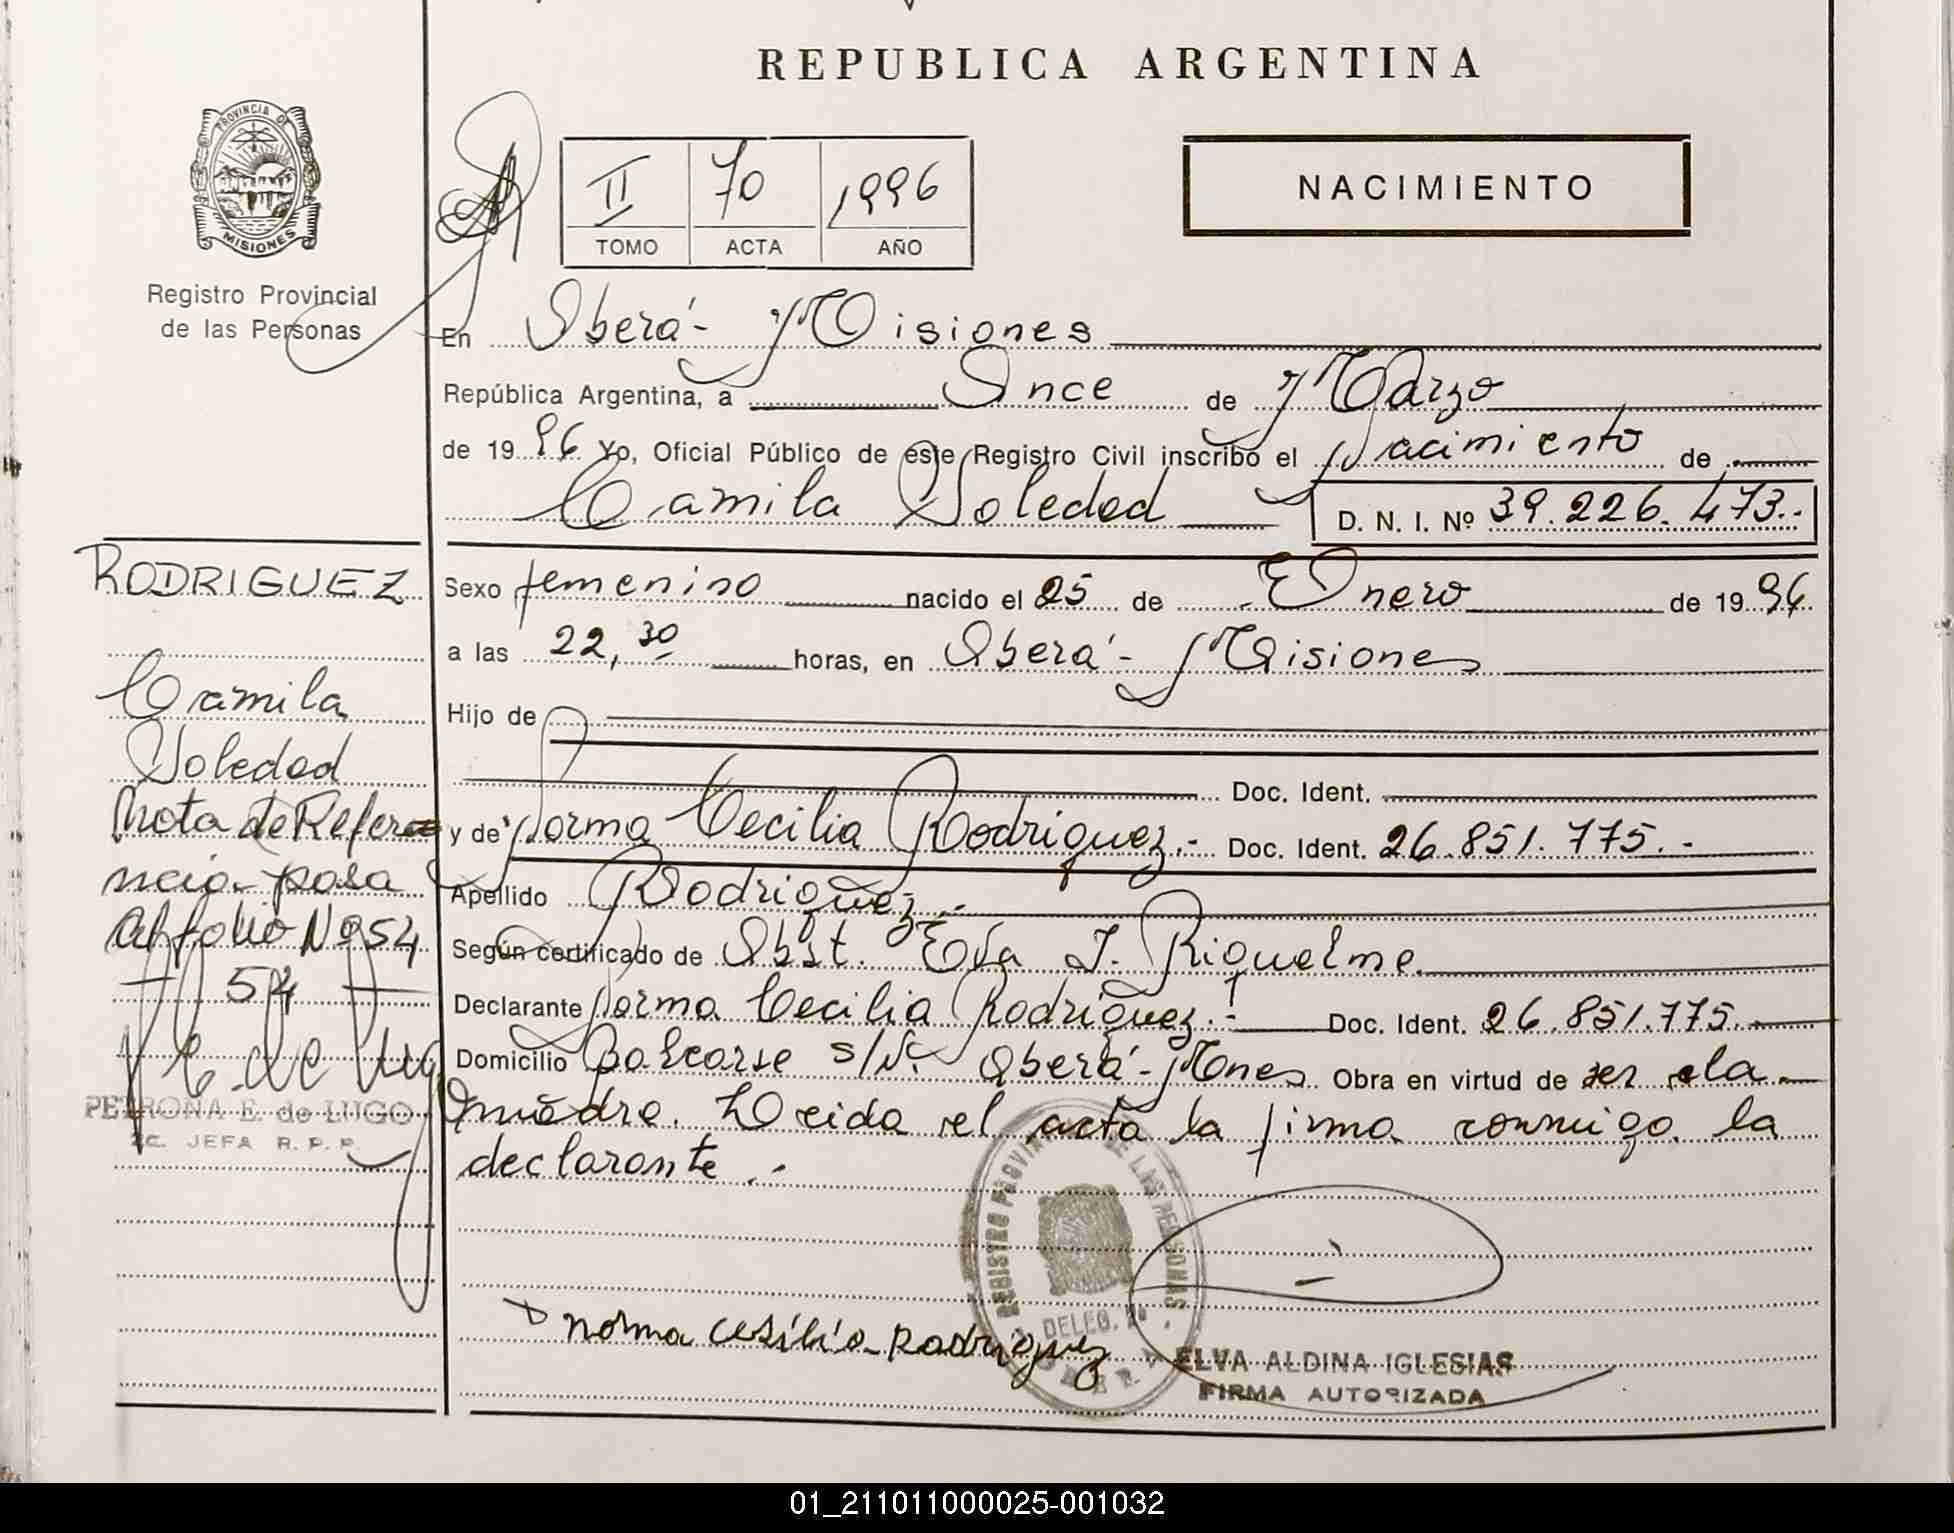 REPUBLICA ARGENTINA
PROVINCIA DE
MISIONES
Registro Provincial
de las Personas
II 70 1996
TOMO ACTA AÑO
NACIMIENTO
En Oberá - Misiones
República Argentina, a Once de Marzo
de 19 96 Yo, Oficial Público de este Registro Civil inscribo el Nacimiento de
Camila Soledad D. N. I. Nº 39.226.473.-
Sexo femenino nacido el 25 de Enero de 19 96
a las 22,30 horas, en Oberá - Misiones
Hijo de
Doc. Ident.
y de Norma Cecilia Rodriguez.- Doc. Ident. 26.851.775.-
Apellido Rodriguez.-
Según certificado de Obst. Eva J. Riquelme
Declarante Norma Cecilia Rodriguez.- Doc. Ident. 26.851.775.
Domicilio Balcarse s/Nº Oberá - Mnes Obra en virtud de ser la
madre. Leida el acta la firma conmigo la
declarante.-
RODRIGUEZ
Camila
Soledad
Nota de Refere
ncia pasa
al folio Nº 54
- 54 -
PETRONA E. de LUGO
JEFA R. P. P.
REGISTRO PROVINCIAL DE LAS PERSONAS
DELEG.
norma cesilia Rodriguez
ELVA ALDINA IGLESIAS
FIRMA AUTORIZADA
01_211011000025-001032